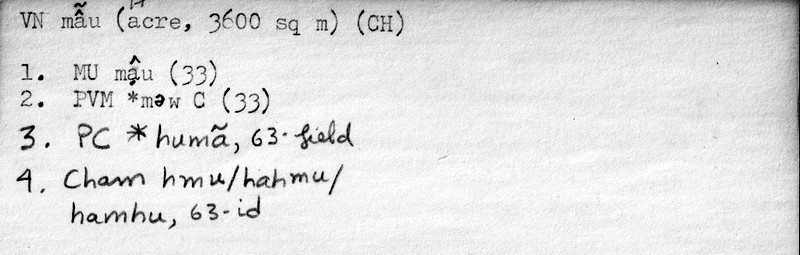 VN mẫu (acre, 3600 sq m) (CH)
1. MU mậu (33)
2. PVM *məw C (33)
3. PC *humã, 63-field
4. Cham hmu/hahmu/
hamhu, 63-id